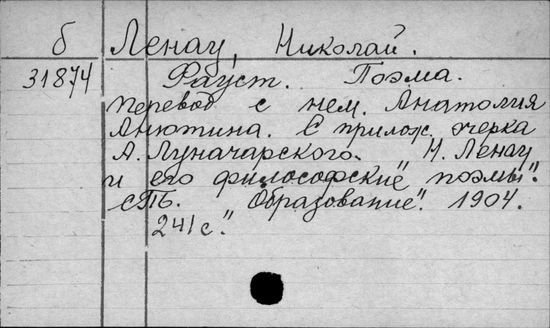 б Ленау, Николай.
31874 Фауст. Поэма.
Перевод с нем. Анатолия
Анютина. С прилож. очерка
А. Луначарского. "Н. Ленау
и его философские поэмы".
СПБ. "Образование". 1904.
241 с."